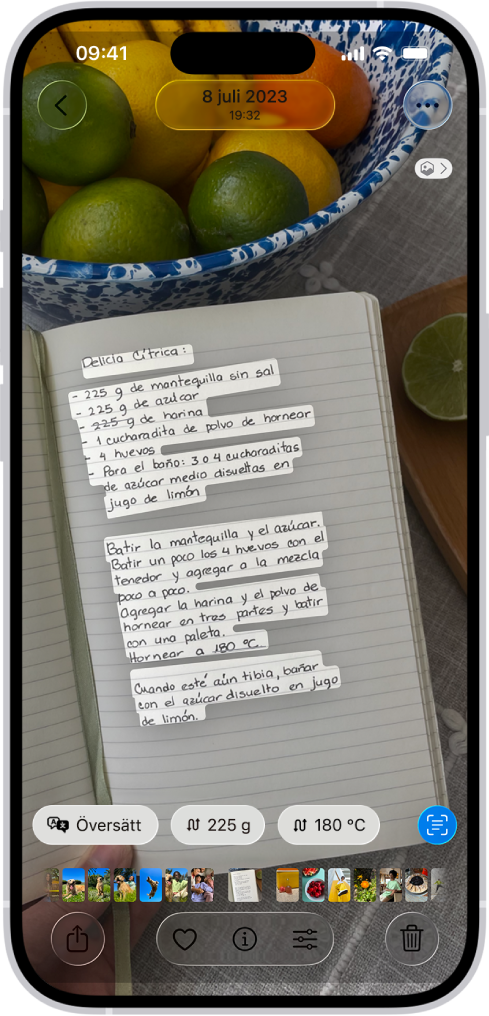 09:41
8 juli 2023
19:32
Delicia Cítrica:
- 225 g de mantequilla sin sal
- 225 g de azúcar
- 225 g de harina
- 1 cucharadita de polvo de hornear
- 4 huevos
- Para el baño: 3 o 4 cucharaditas
de azúcar medio disueltas en
jugo de limón
Batir la mantequilla y el azúcar.
Batir un poco los 4 huevos con el
tenedor y agregar a la mezcla
poco a poco.
Agregar la harina y el polvo de
hornear en tres partes y batir
con una paleta.
Hornear a 180 °C.
Cuando esté aún tibia, bañar
con el azúcar disuelto en jugo
de limón.
Översätt
225 g
180 °C